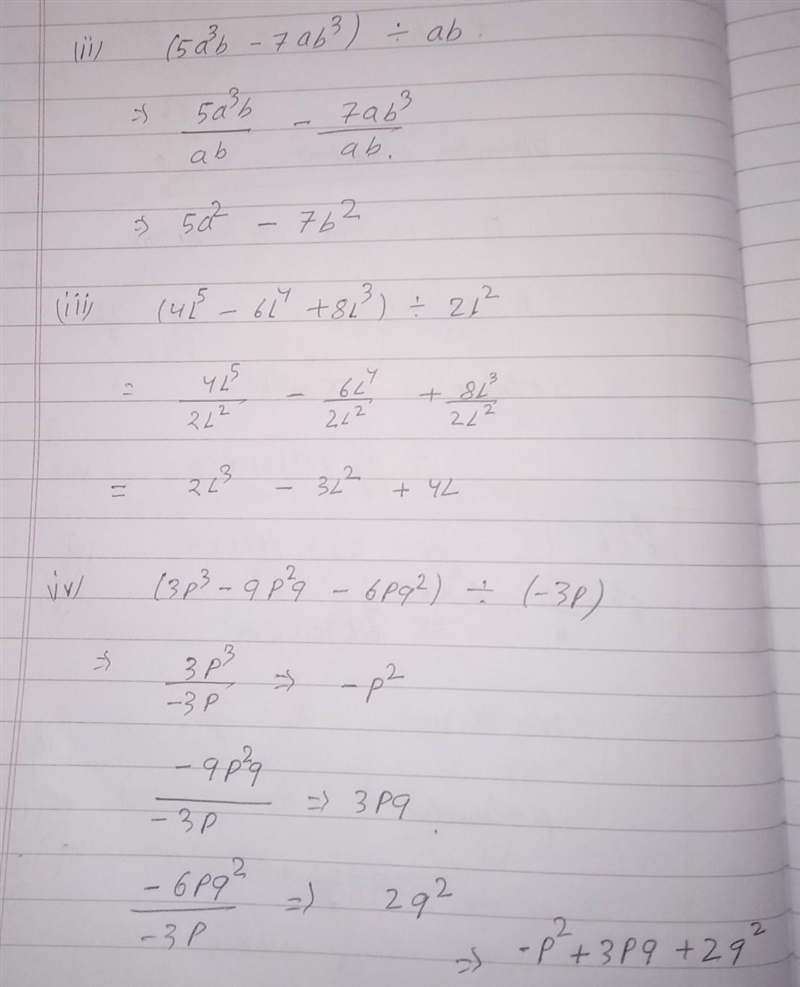 (ii) (5a³b - 7ab³) ÷ ab.
⇒ 5a³b/ab - 7ab³/ab.
⇒ 5a² - 7b²
(iii) (4L⁵ - 6L⁴ + 8L³) ÷ 2L²
= 4L⁵/2L² - 6L⁴/2L² + 8L³/2L²
= 2L³ - 3L² + 4L
iv) (3P³ - 9P²q - 6Pq²) ÷ (-3P)
⇒ 3P³/-3P ⇒ -P²
-9P²q/-3P ⇒ 3Pq.
-6Pq²/-3P ⇒ 2q²
⇒ -P² + 3Pq + 2q²